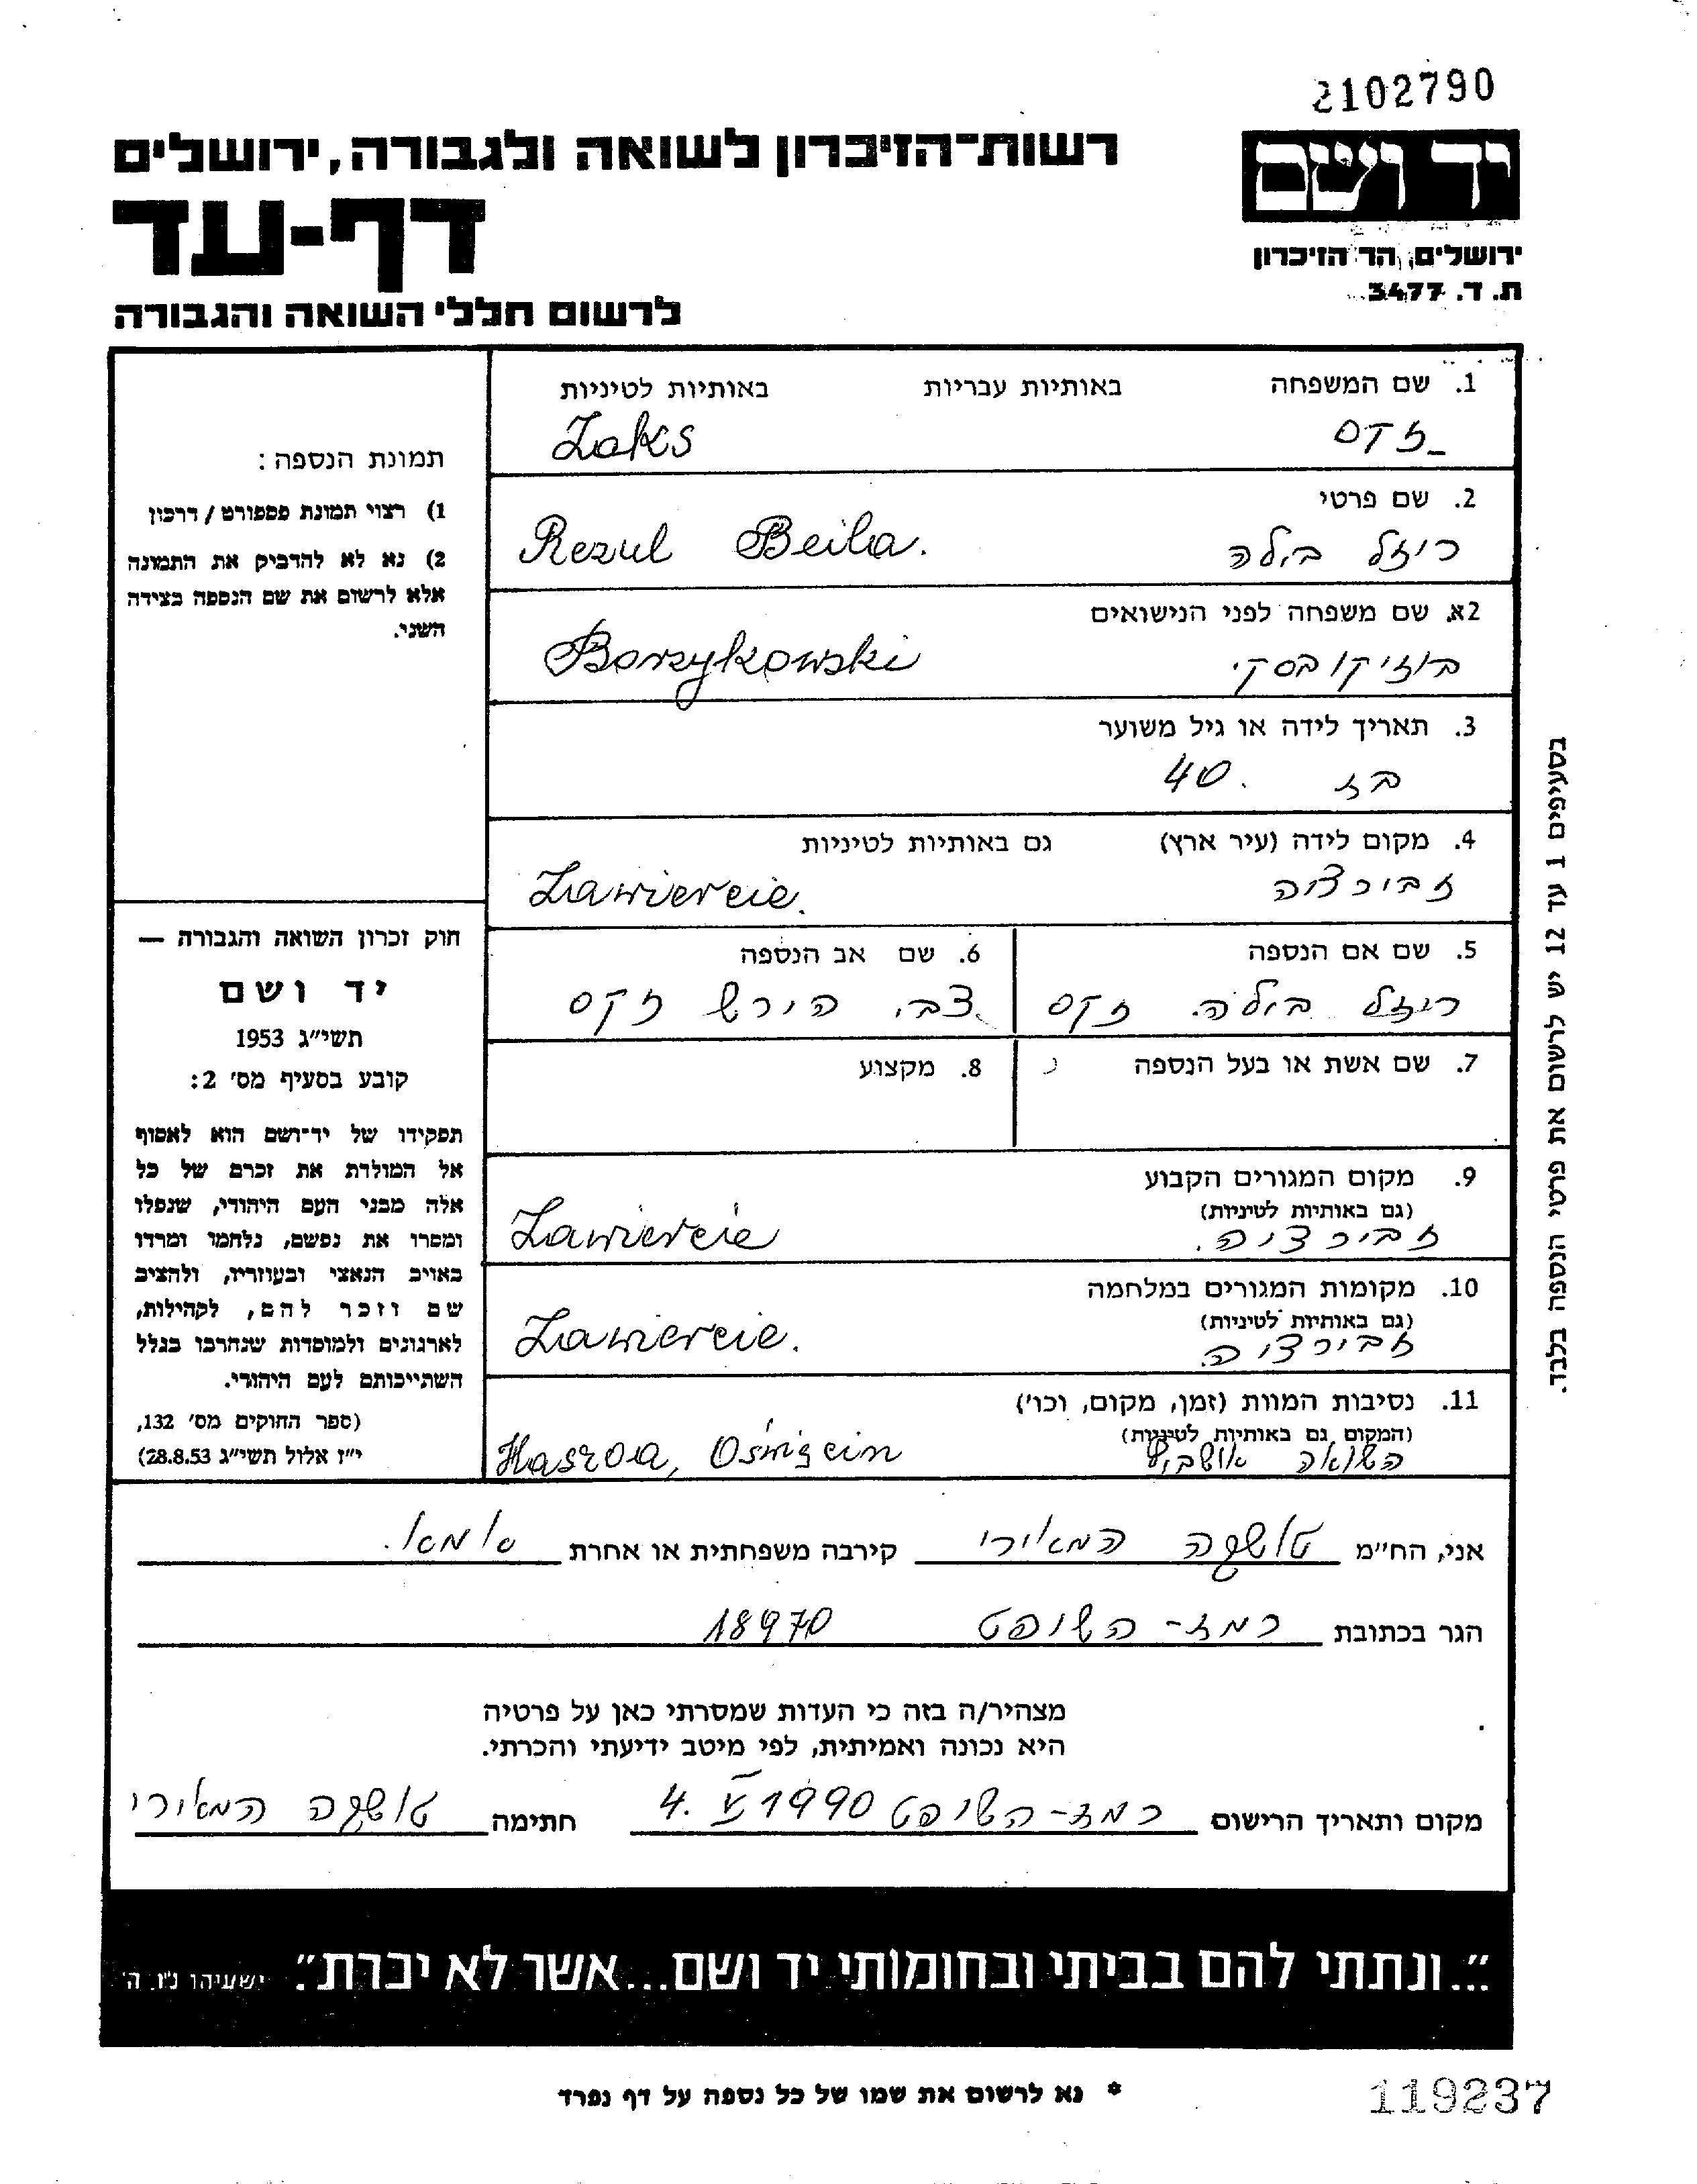 2102790
יד ושם
רשות־הזיכרון לשואה ולגבורה, ירושלים
דף-עד
ירושלים, הר הזיכרון
ת. ד. 3477
לרשום חללי השואה והגבורה
1. שם המשפחה באותיות עבריות באותיות לטיניות
זקס Zaks
2. שם פרטי
ריזל בילה Rezul Beila.
2א. שם משפחה לפני הנישואים
בוז'יקובסקי Borzykowski
3. תאריך לידה או גיל משוער
בת 40.
4. מקום לידה (עיר ארץ) גם באותיות לטיניות
זבירציה Zawiercie.
5. שם אם הנספה 6. שם אב הנספה
ריזל בילה. זקס צבי הירש זקס
7. שם אשת או בעל הנספה 8. מקצוע
9. מקום המגורים הקבוע
(גם באותיות לטיניות)
זבירציה. Zawiercie
10. מקומות המגורים במלחמה
(גם באותיות לטיניות)
זבירציה. Zawiercie.
11. נסיבות המוות (זמן, מקום, וכו')
(המקום גם באותיות לטיניות)
השואה אושביץ Haszoa,
תמונת הנספה:
1) רצוי תמונת פספורט / דרכון
2) נא לא להדביק את התמונה
אלא לרשום את שם הנספה בצידה
השני.
חוק זכרון השואה והגבורה —
יד ושם
תשי"ג 1953
קובע בסעיף מס' 2:
תפקידו של יד־ושם הוא לאסוף
אל המולדת את זכרם של כל
אלה מבני העם היהודי, שנפלו
ומסרו את נפשם, נלחמו ומרדו
באויב הנאצי ובעוזריו, ולהציב
שם וזכר להם, לקהילות,
לארגונים ולמוסדות שנחרבו בגלל
השתייכותם לעם היהודי.
(ספר החוקים מס' 132,
י"ז אלול תשי"ג 28.8.53)
בסעיפים 1 עד 12 יש לרשום את פרטי הנספה בלבד.
אני, הח"מ טושקה המאירי קירבה משפחתית או אחרת אמא.
הגר בכתובת רמז-השופט 18970
מצהיר/ה בזה כי העדות שמסרתי כאן על פרטיה
היא נכונה ואמיתית, לפי מיטב ידיעתי והכרתי.
מקום ותאריך הרישום רמז-השופט 4. V 1990 חתימה טושקה המאירי
"...ונתתי להם בביתי ובחומותי יד ושם...אשר לא יכרת". ישעיהו נ"ו, ה'
* נא לרשום את שמו של כל נספה על דף נפרד
119237